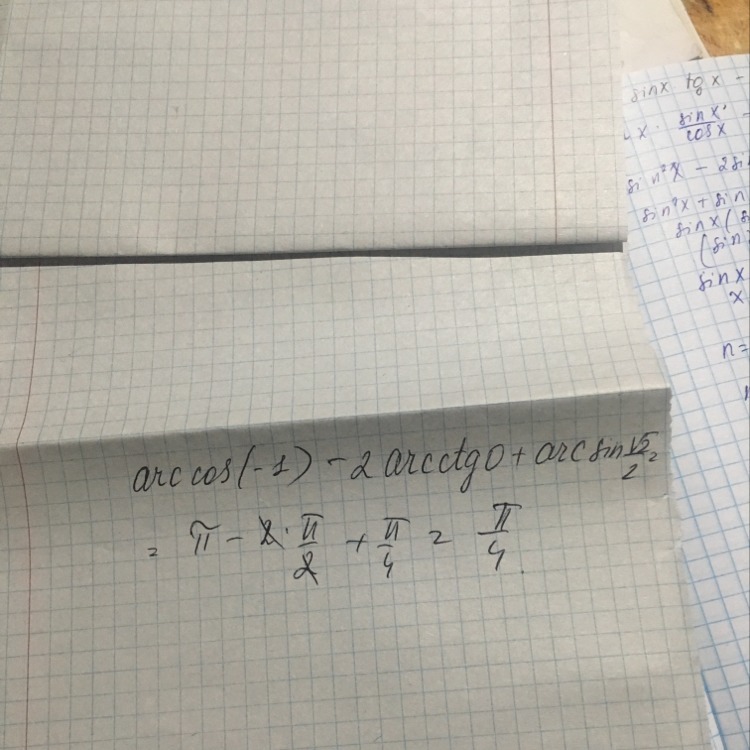 sinx tgx -
x · sinx/cosx -
sin²x - 2si
sin²x + sin
sinx(s
(sin
sinx
x
n =
arccos(-1) - 2arcctg0 + arcsin √2/2 =
= π - 2 · π/2 + π/4 = π/4